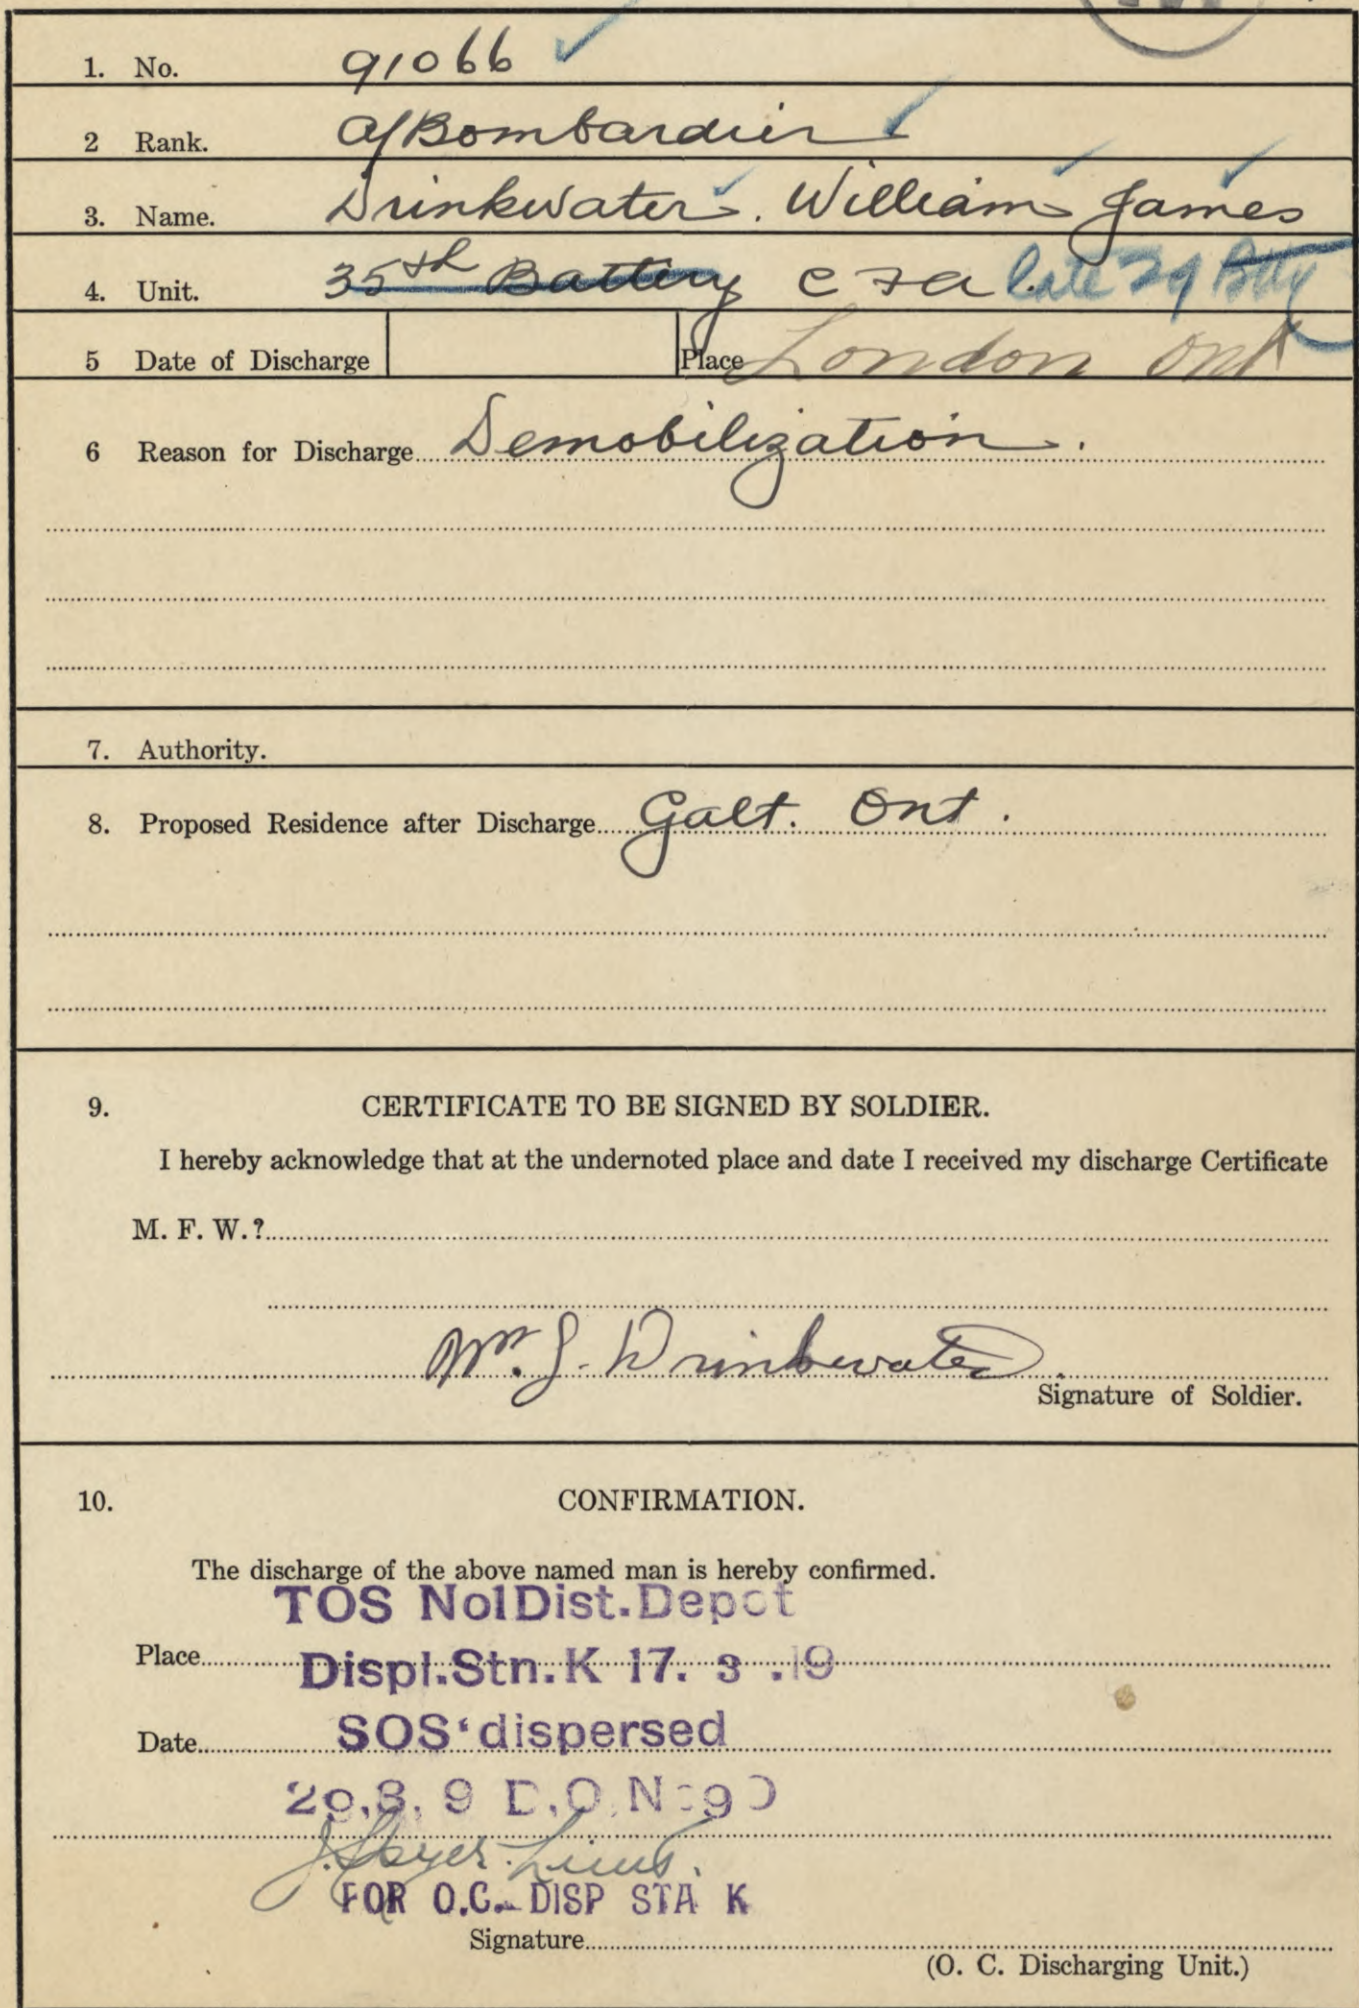 1. No. 91066
2 Rank. a/Bombardier
3. Name. Drinkwater. William James
4. Unit. 35th Battery C F A late 29 Bty
5 Date of Discharge Place London Ont
6 Reason for Discharge Demobilization.
7. Authority.
8. Proposed Residence after Discharge Galt. Ont.
9. CERTIFICATE TO BE SIGNED BY SOLDIER.
I hereby acknowledge that at the undernoted place and date I received my discharge Certificate
M. F. W.?
Wm. J. Drinkwater
Signature of Soldier.
10. CONFIRMATION.
The discharge of the above named man is hereby confirmed.
TOS No1Dist.Depot
Place Displ.Stn.K 17. 3 .19
Date SOS dispersed
20.3. 9 D.O.No 90
FOR O.C. DISP STA K
Signature
(O. C. Discharging Unit.)